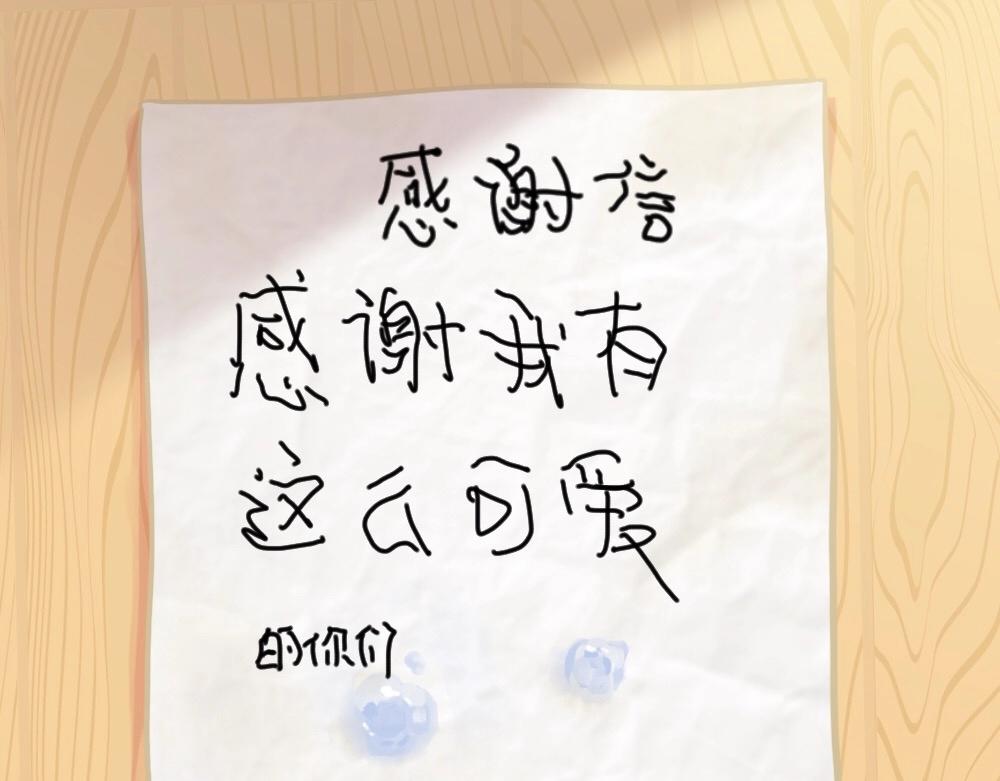 感谢信
感谢我有
这么可爱
的你们